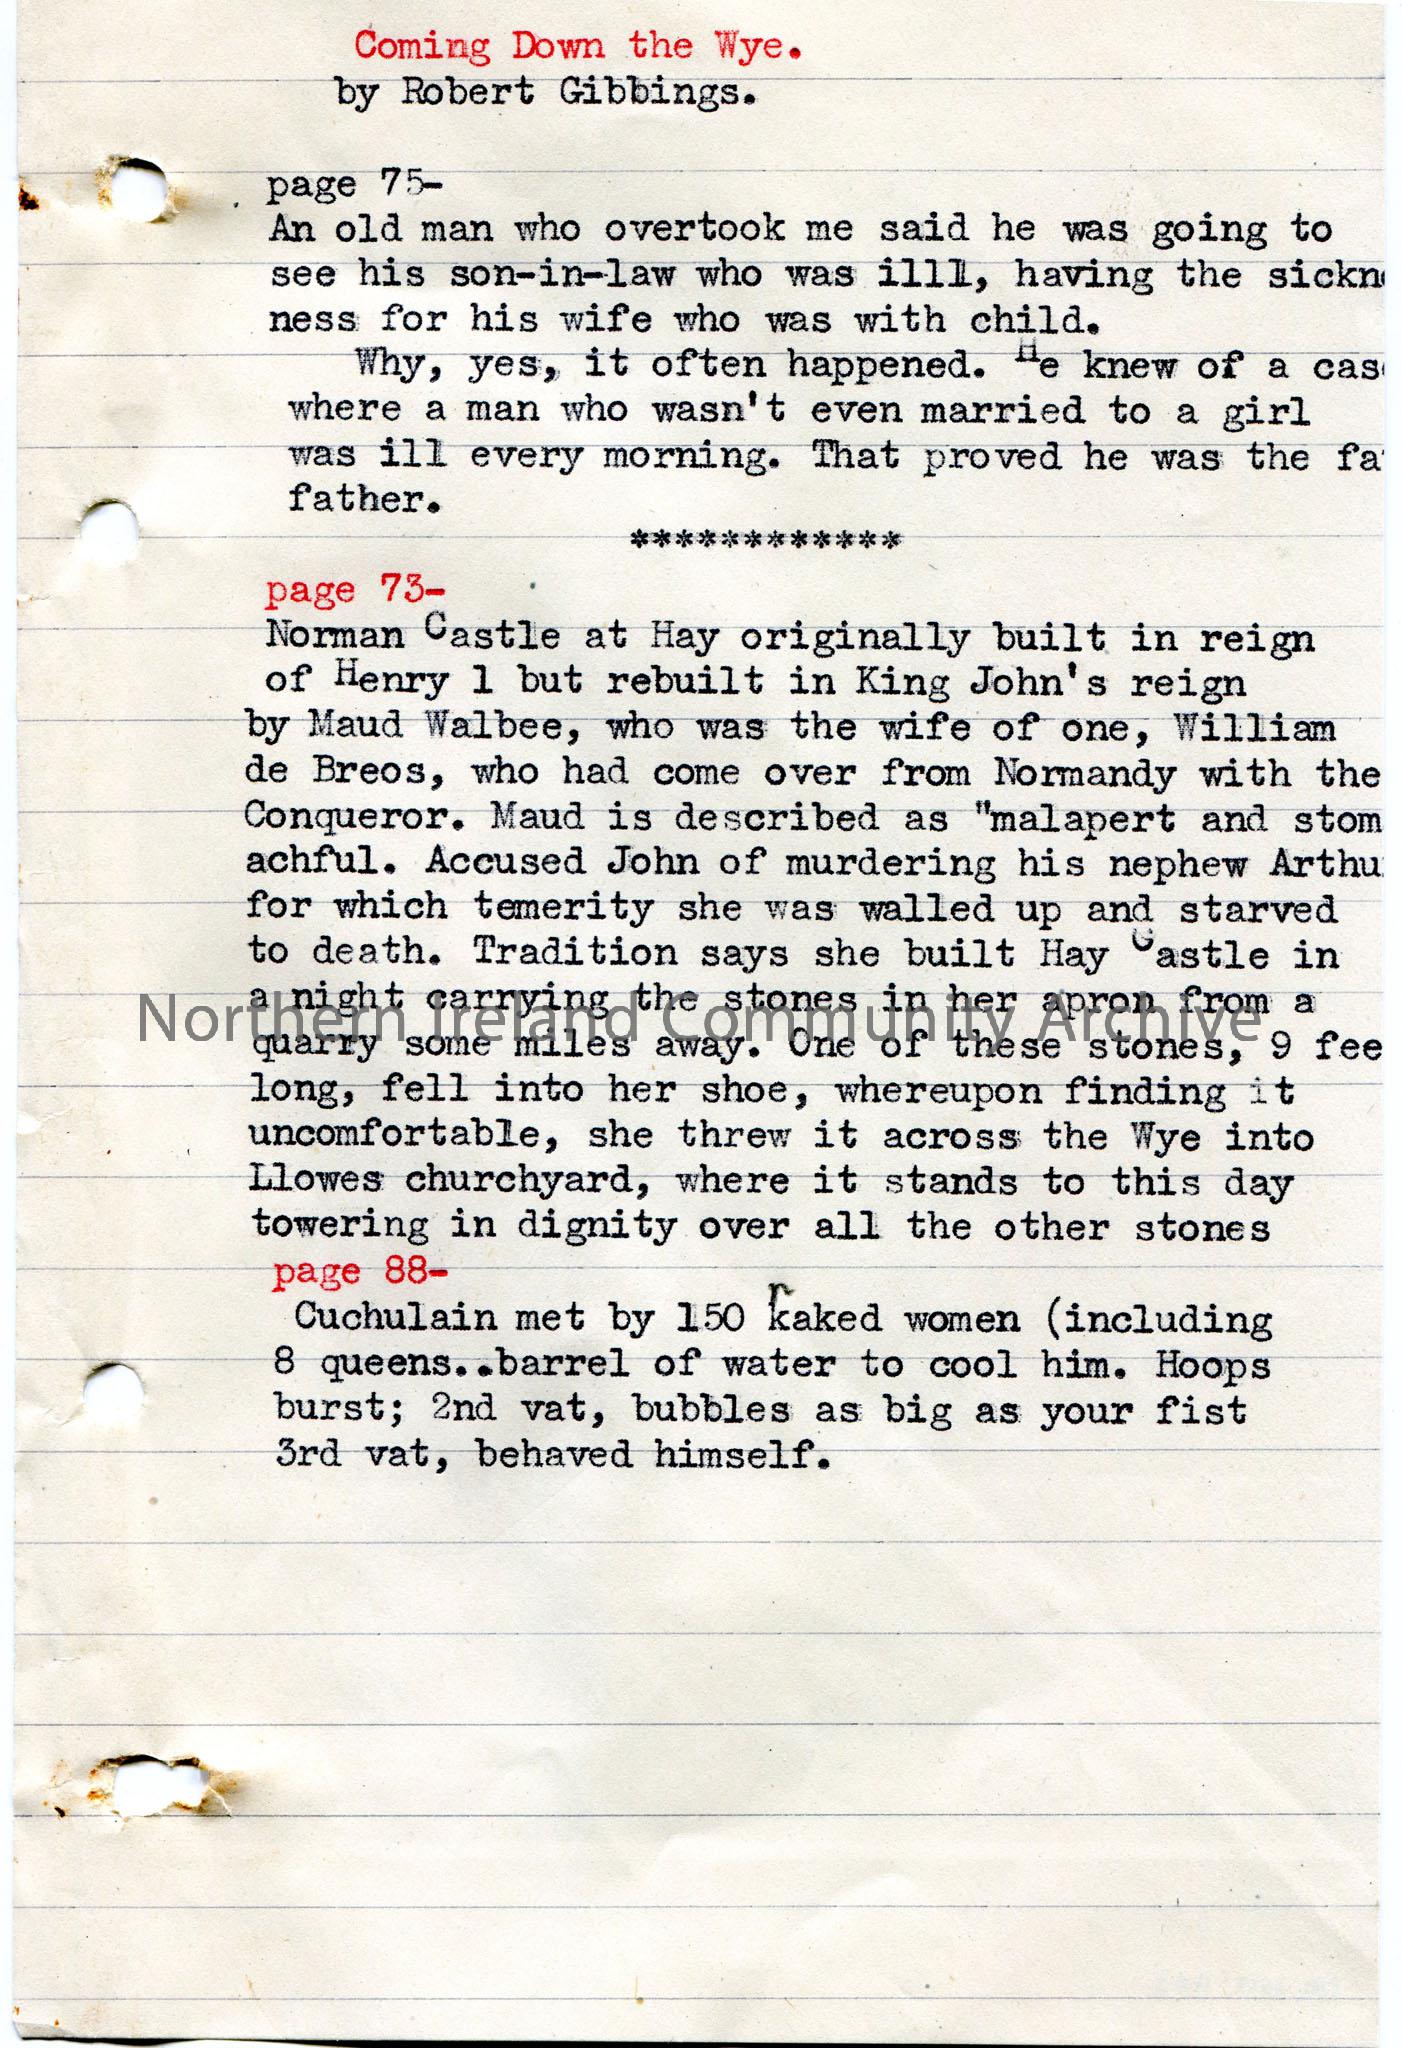 Coming Down the Wye.
by Robert Gibbings.
page 75-
An old man who overtook me said he was going to
see his son-in-law who was illl, having the sickn
ness for his wife who was with child.
Why, yes, it often happened. He knew of a cas
where a man who wasn't even married to a girl
was ill every morning. That proved he was the fa
father.
************
page 73-
Norman Castle at Hay originally built in reign
of Henry 1 but rebuilt in King John's reign
by Maud Walbee, who was the wife of one, William
de Breos, who had come over from Normandy with the
Conqueror. Maud is described as "malapert and stom
achful. Accused John of murdering his nephew Arthu
for which temerity she was walled up and starved
to death. Tradition says she built Hay Castle in
a night carrying the stones in her apron from a
Northern Ireland Community Archive
quarry some miles away. One of these stones, 9 fee
long, fell into her shoe, whereupon finding it
uncomfortable, she threw it across the Wye into
Llowes churchyard, where it stands to this day
towering in dignity over all the other stones
page 88-
Cuchulain met by 150 naked women (including
8 queens..barrel of water to cool him. Hoops
burst; 2nd vat, bubbles as big as your fist
3rd vat, behaved himself.